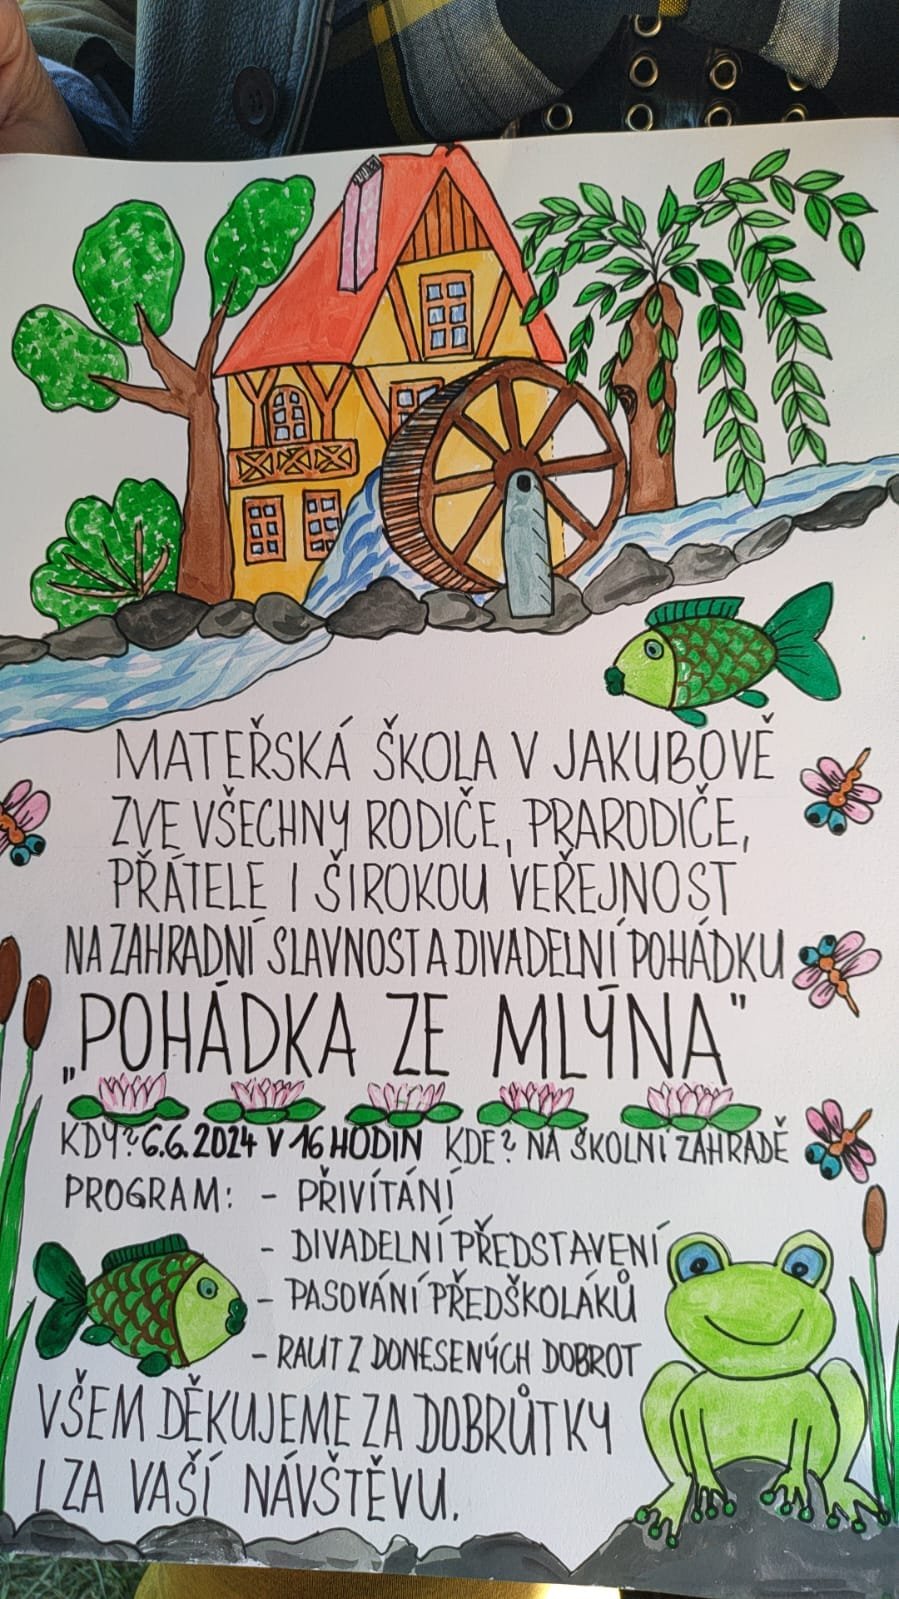 MATEŘSKÁ ŠKOLA V JAKUBOVĚ
ZVE VŠECHNY RODIČE, PRARODIČE,
PŘÁTELE I ŠIROKOU VEŘEJNOST
NA ZAHRADNÍ SLAVNOST A DIVADELNÍ POHÁDKU
„POHÁDKA ZE MLÝNA"
KDY? 6.6.2024 V 16 HODIN KDE? NA ŠKOLNÍ ZAHRADĚ
PROGRAM: - PŘIVÍTÁNÍ
- DIVADELNÍ PŘEDSTAVENÍ
- PASOVÁNÍ PŘEDŠKOLÁKŮ
- RAUT Z DONESENÝCH DOBROT
VŠEM DĚKUJEME ZA DOBRŮTKY
I ZA VAŠÍ NÁVŠTĚVU.